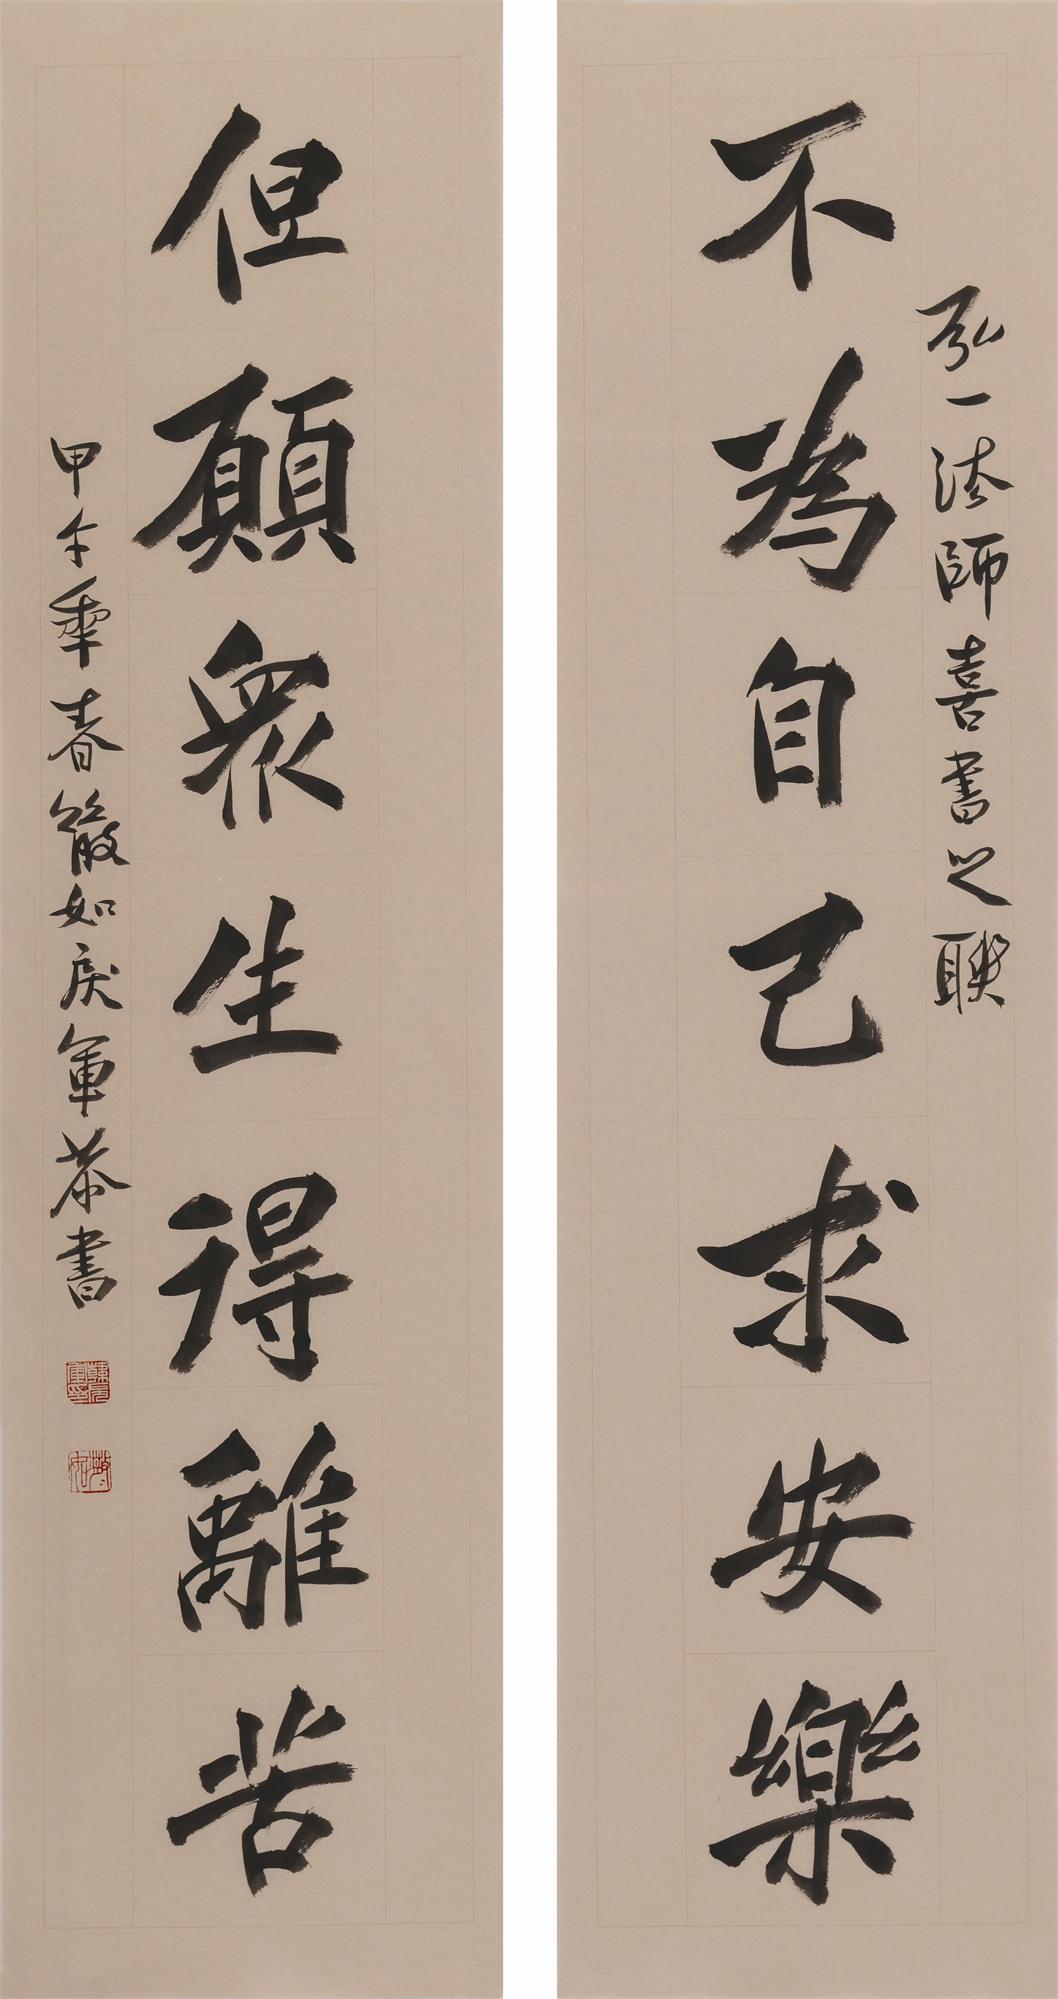 弘一法師喜書之聯
不為自己求安樂
但願眾生得離苦
甲午年春節後如戾軍恭書